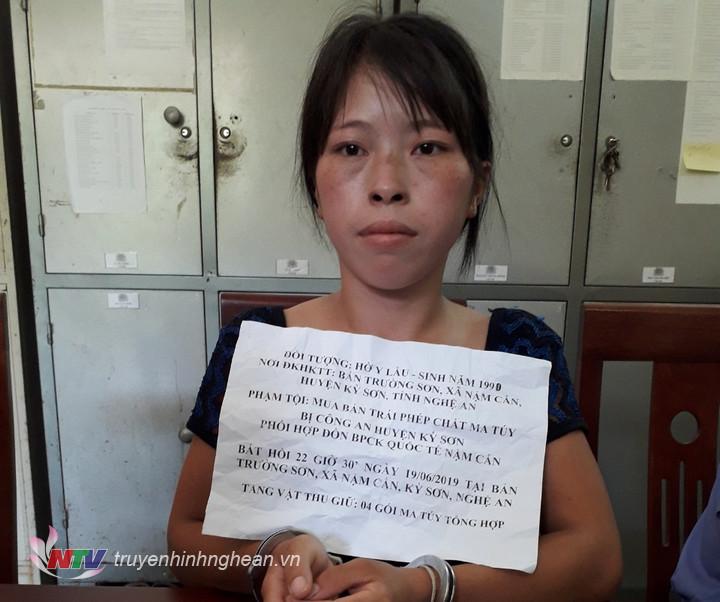 ĐỐI TƯỢNG: HỜ Y LẦU - SINH NĂM 1990
NƠI ĐKHKTT: BẢN TRƯỜNG SƠN, XÃ NẬM CẮN,
HUYỆN KỲ SƠN, TỈNH NGHỆ AN
PHẠM TỘI: MUA BÁN TRÁI PHÉP CHẤT MA TÚY
BỊ CÔNG AN HUYỆN KỲ SƠN
PHỐI HỢP ĐỒN BPCK QUỐC TẾ NẬM CẮN
BẮT HỒI 22 GIỜ 30' NGÀY 19/06/2019 TẠI BẢN
TRƯỜNG SƠN, XÃ NẬM CẮN, KỲ SƠN, NGHỆ AN
TANG VẬT THU GIỮ: 04 GÓI MA TÚY TỔNG HỢP
NTV truyenhinhnghean.vn